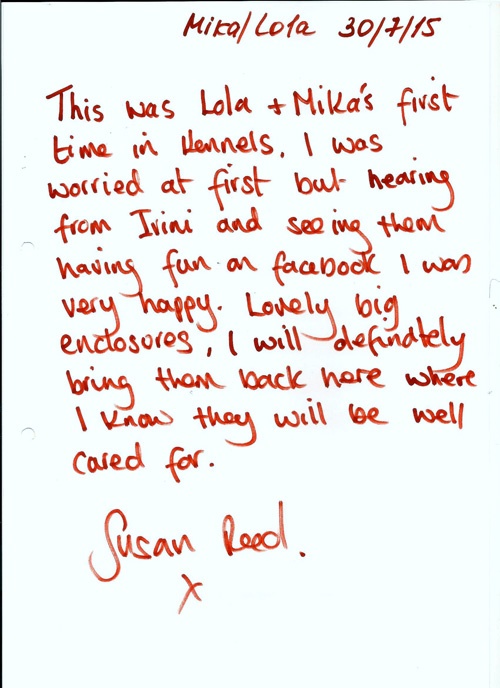 Mika/Lola 30/7/15
This was Lola + Mika's first
time in kennels. I was
worried at first but hearing
from Irini and seeing them
having fun on facebook I was
very happy. Lovely big
enclosures, I will definately
bring them back here where
I know they will be well
cared for.
Susan Reed.
x